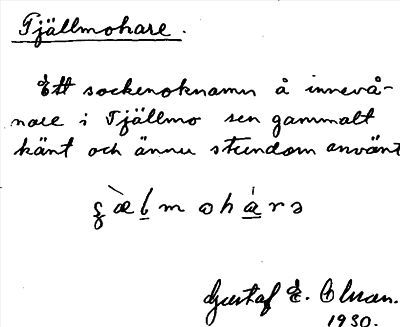 Tjällmohare.
Ett sockenöknamn å innevå-
nare i Tjällmo sen gammalt
känt och ännu stundom använt
Gustaf E.
1930.